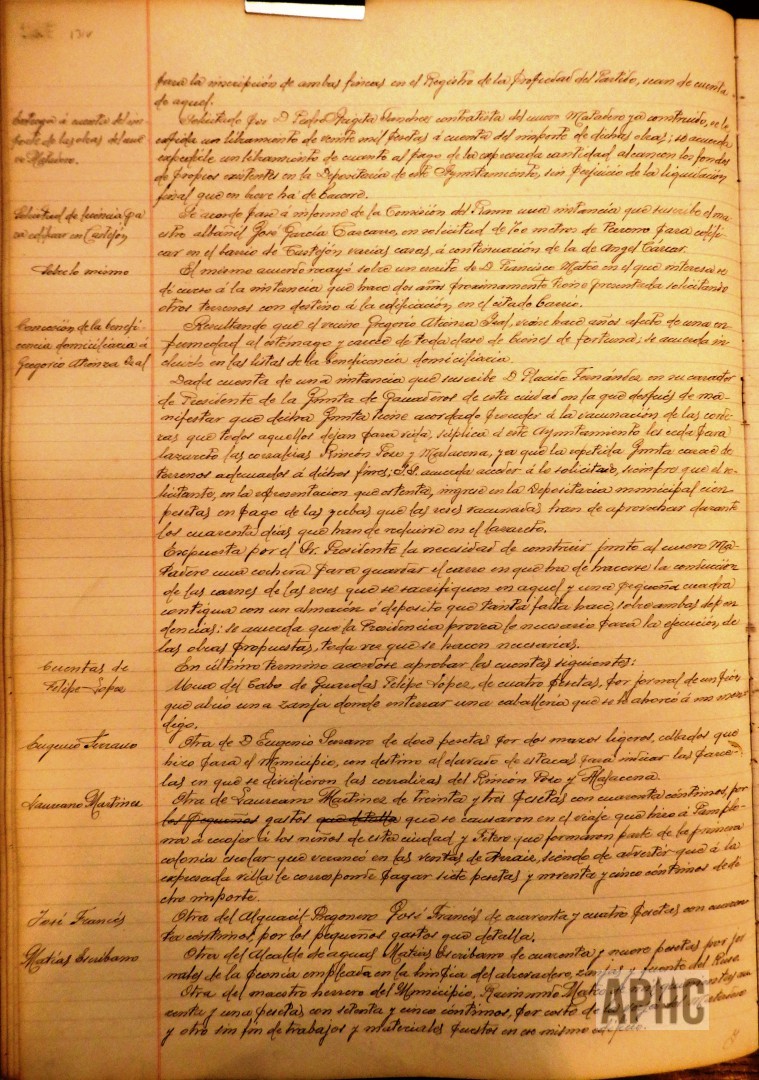 para la inscripción de ambas fincas en el Registro de la Propiedad del Partido, sean de cuenta
de aquel.
Entrega á cuenta del im-
porte de las obras del nue-
vo Matadero.
Solicitado por D. Pedro contratista del nuevo Matadero ya construido, se le
expida un libramiento de veinte mil pesetas á cuenta del importe de dichas obras; se acuerda
expedirle un libramiento de cuanto al pago de la expresada cantidad alcancen los fondos
de propios existentes en la Depositaria de este Ayuntamiento, sin perjuicio de la liquidación
final que en breve ha de hacerse.
Solicitud de licencia pa-
ra edificar en Castejón
Se acordó pase á informe de la Comisión del Ramo una instancia que suscribe el ma-
estro albañil José García Carcarro, en solicitud de 700 metros de terreno para edifi-
car en el barrio de Castejón varias casas, á continuación de la de Angel Cárcar.
Sobre lo mismo
El mismo acuerdo recayó sobre un escrito de D. Francisco Mateo en el que interesa se
dé curso á la instancia que hace dos años proximamente tiene presentada solicitando
otros terrenos con destino á la edificación, en el citado barrio.
Concesión de la benefi-
cencia domiciliaria á
Gregorio Atienza Leal
Resultando que el vecino Gregorio Atienza Leal, viene hace años afecto de una en-
fermedad al estómago y carece de toda clase de bienes de fortuna; se acuerda in-
cluirlo en las listas de la Beneficencia domiciliaria.
Dada cuenta de una instancia que suscribe D. Placido Fernández en su caracter
de Presidente de la Junta de Ganaderos de esta ciudad en la que después de ma-
nifestar que dicha Junta tiene acordado proceder á la vacunación de las corde-
ras que todos aquellos dejan para vida, suplica á este Ayuntamiento les ceda para
lazareto las corralizas Rincón Poso y Malacena, ya que la repetida Junta carece de
terrenos adecuados á dichos fines; S.S. acuerda acceder á lo solicitado, siempre que el so-
licitante, en la representación que ostenta, ingrese en la Depositaria municipal cien
pesetas en pago de las yerbas que las reses vacunadas han de aprovechar durante
los cuarenta días que han de reducirse en el lazareto.
Expuesta por el Sr. Presidente la necesidad de construir junto al nuevo Ma-
tadero una cochera para guardar el carro en que ha de hacerse la conducción
de las carnes de las reses que se sacrifiquen en aquel y una pequeña cuadra
contigua con un almacén ó deposito que tanta falta hace, sobre ambas depen-
dencias: se acuerda que la Presidencia provea lo necesario para la ejecución, de
las obras propuestas, toda vez que se hacen necesarias.
En último termino acordóse aprobar las cuentas siguientes:
Cuentas de
Felipe Lopez
Una del Cabo de Guardas Felipe Lopez, de cuatro pesetas, por jornal de un peón
que abrió una zanja donde enterrar una caballería que se le ahorcó á un men-
digo.
Eugenio Serrano
Otra de D. Eugenio Serrano de doce pesetas por dos mazos ligeros, collados que
hizo para el Municipio, con destino al clavado de estacas para indicar las parce-
las en que se dividieron las corralizas del Rincón Poso y Malacena.
Laureano Martinez
Otra de Laureano Martinez de treinta y tres pesetas con cuarenta céntimos, por
los pequeños gastos que detalla que se causaron en el viaje que hizo á Pamplo-
na á recojer á los niños de esta ciudad y Fitero que formaron parte de la primera
colonia escolar que veraneó en las ventas de Arraiz, siendo de advertir que á la
expresada villa le corresponde pagar siete pesetas y noventa y cinco céntimos de di-
cho importe.
José Francés
Otra del Alguacil Pregonero José Francés de cuarenta y cuatro pesetas con cuaren-
ta céntimos, por los pequeños gastos que detalla.
Matías Escribano
Otra del Alcalde de aguas Matías Escribano de cuarenta y nueve pesetas por jor-
nales de la peonía empleada en la limpia del abrevadero, y fuente del
Otra del maestro herrero del Municipio, Raimundo
renta y una pesetas con setenta y cinco céntimos, por costo de
y otro sin fin de trabajos y materiales puestos en ese mismo edificio.
APHC